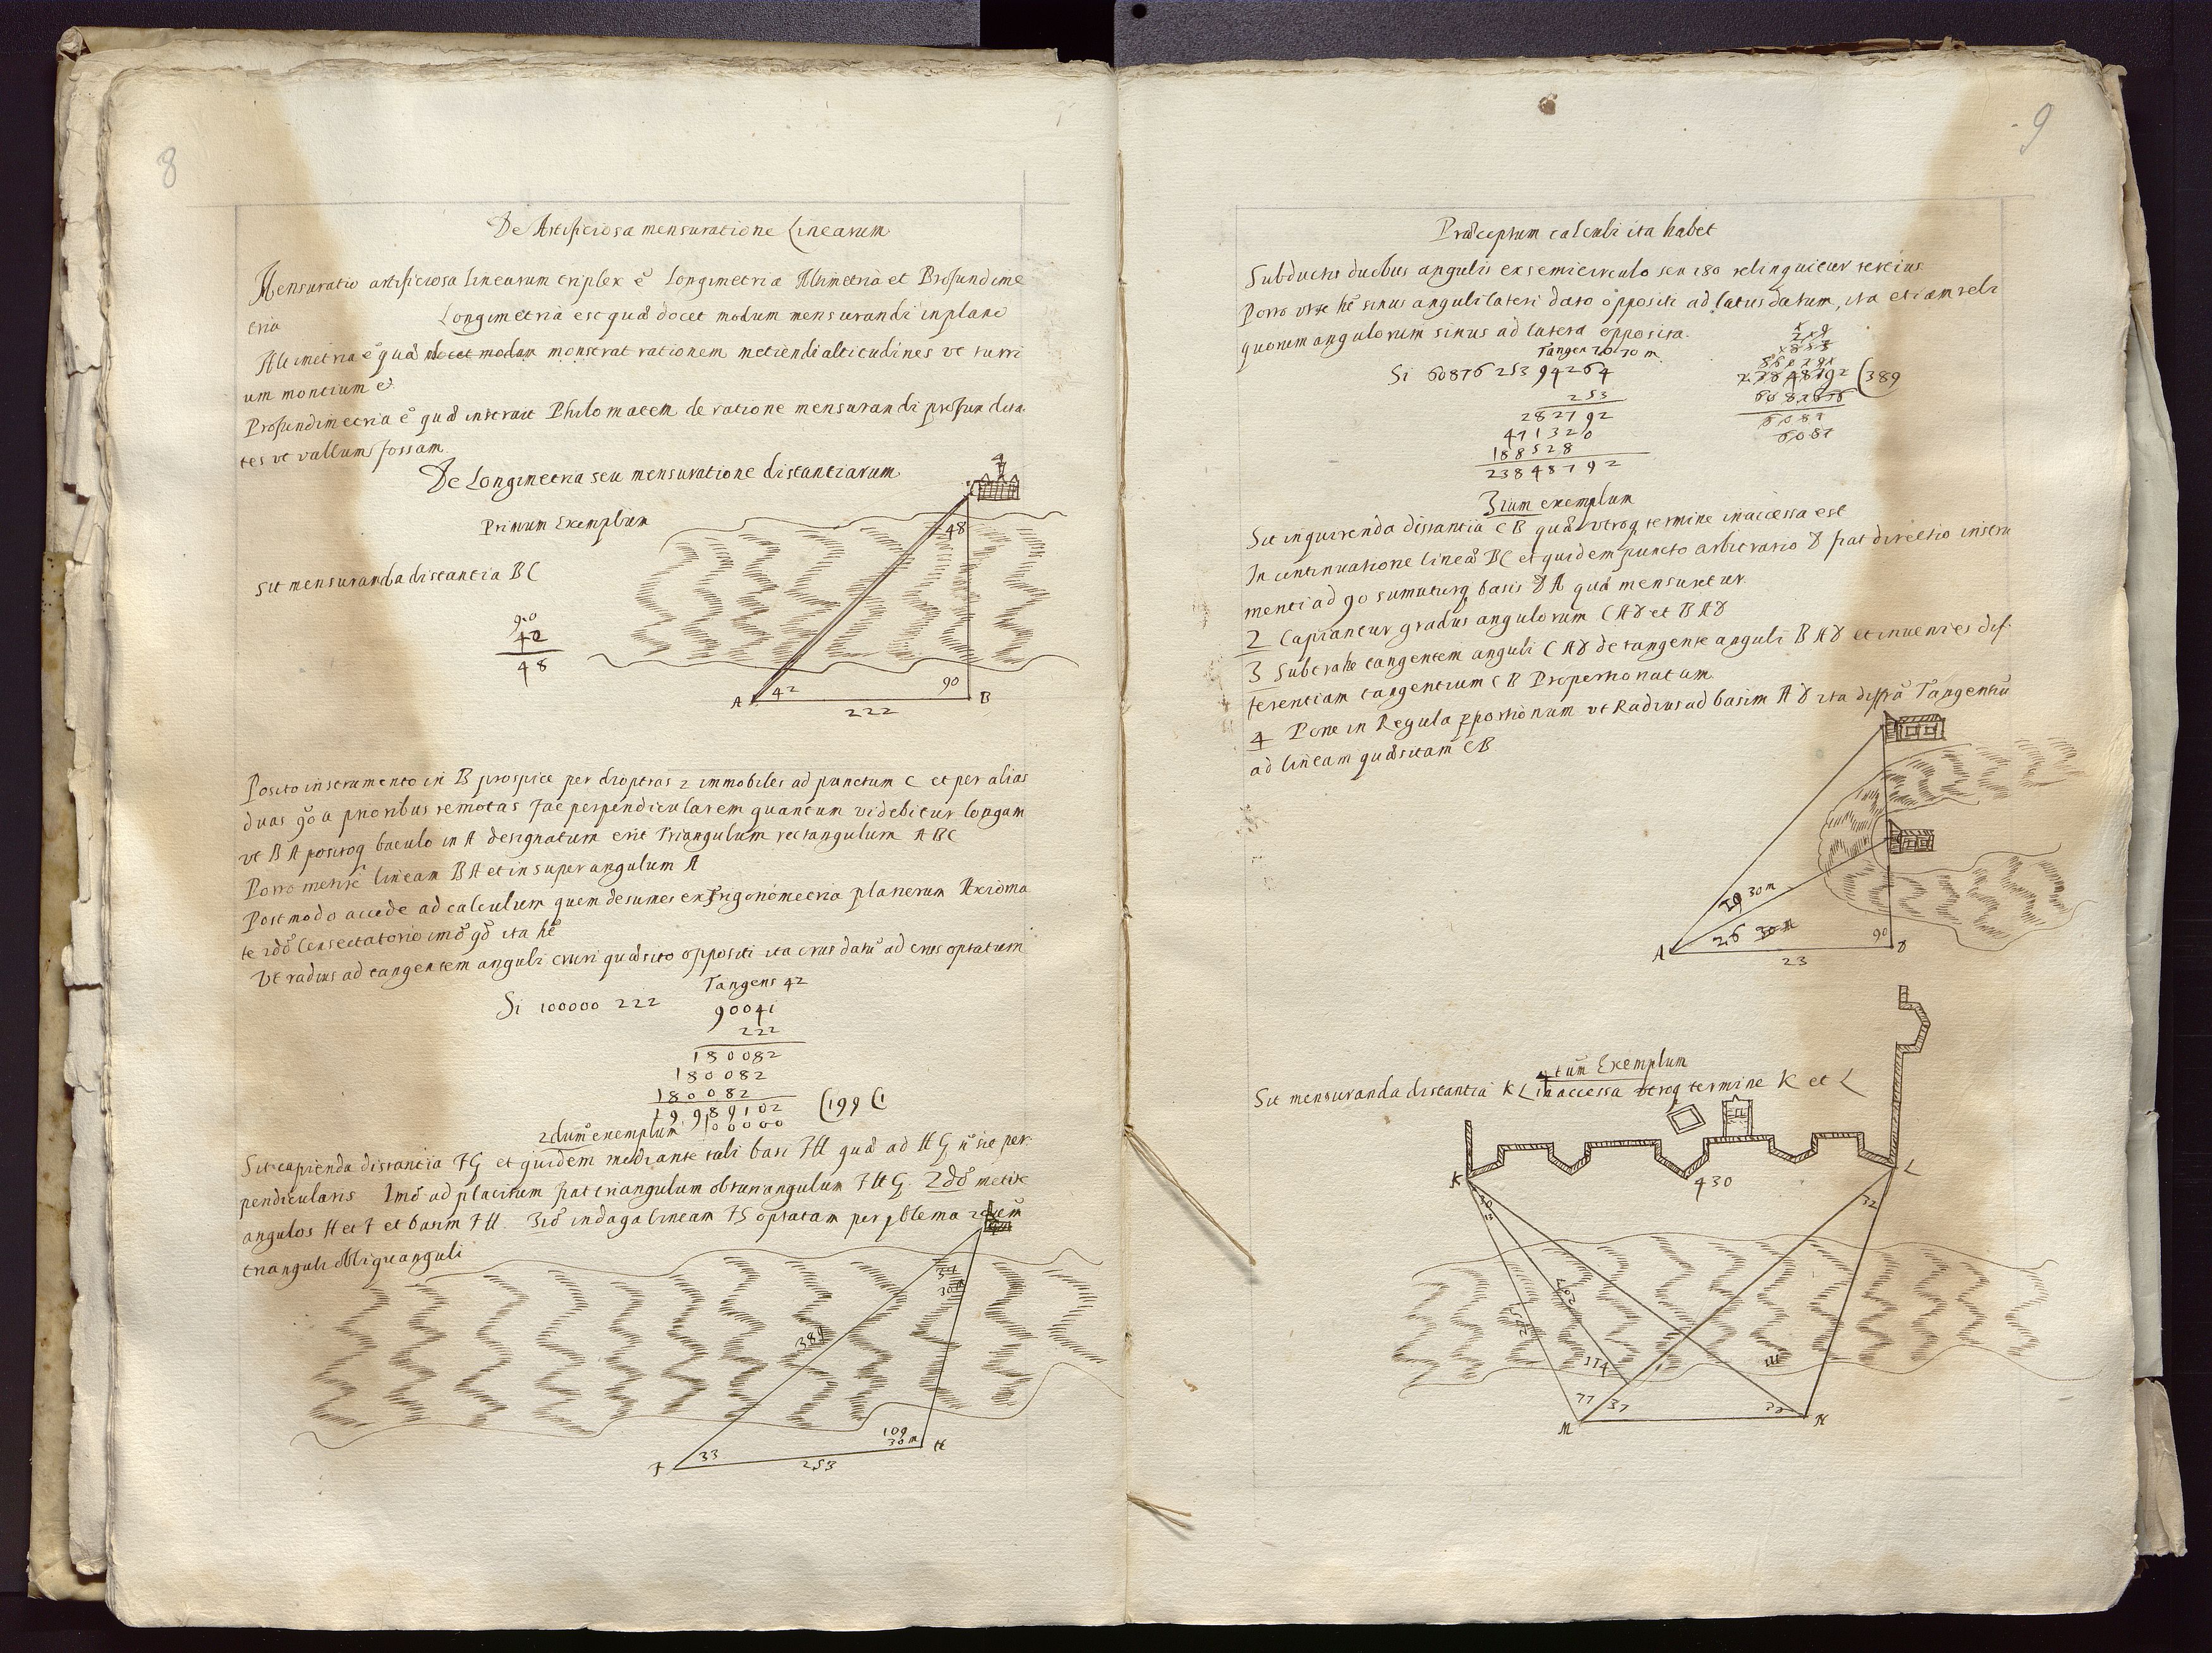 8
De Artificiosa mensuratione Linearum
Mensuratio artificiosa linearum triplex ē Longimetria Altimetria et Profundime
tria Longimetria est quæ docet modum mensurandi in plano
Altimetria ē quæ docet modum monstrat rationem metiendi altitudines vt turri
um montium &
Profundimetria ē quæ instruit Philomatem de ratione mensurandi profundita
tes vt vallum fossam
De Longimetria seu mensuratione distantiarum
Primum Exemplum
48
Sit mensuranda distantia BC
90
42
48
A 42 90 B
222
Posito instrumento in B prospice per dioptras 2 immobiles ad punctum C et per alias
duas 90 a prioribus remotas fac perpendicularem quantum videbitur longam
vt BA positoq baculo in A designatum erit Triangulum rectangulum ABC
Porro metire lineam BA et insuper angulum A
Postmodo accede ad calculum quem desumes ex Trigonometria planorum Axioma
te 2dō Consectatorio imō qd ita hē
Vt radius ad tangentem anguli cruri quæsito oppositi ita crus datū ad crus optatum
Tangens 42
Si 100000 222 90041
222
180082
180082
180082
19989102 (199 (1
100000
2dum exemplum
Sit capienda distantia FG et quidem mediante tali basi FH quæ ad HG ñ sit per
pendicularis Imō ad placitum fiat triangulum obtusangulum FHG. 2dō metire
angulos H et F et basim FH. 3iō indaga lineam FG optatam per pblema
trianguli obliquanguli
30
389
109
30 m H
F 33
253
9
Præceptum calculi ita habet
Subductis duobus angulis ex semicirculo seu 180 relinquitur tertius
Porro vti se hē sinus anguli lateri dato oppositi ad latus datum, ita etiam reli
quorum angulorum sinus ad latera opposita.
Tangen 70 30 m
Si 60876 253 94264
253
282792
471320
188528
23848792
(389
6087
6087
3ium exemplum
Sit inquirenda distantia CB quæ vtroq termine inaccessa est
In continuatione lineæ BC et quidem puncto arbitrario D fiat directio instru
menti ad 90 sumaturq basis DA quæ mensuretur
2 Capiantur gradus angulorum CAD et BAD
3 Subtrahe tangentem anguli CAD de tangente anguli BAD et invenies dif
ferentiam tangentium CB Proportionatam
4 Pone in Regula pportionum vt Radius ad basim AD ita diffrā Tangentiū
ad lineam quæsitam CB
19 30 m
26 30 m
90
A 23 D
4tum Exemplum
Sit mensuranda distantia KL inaccessa vtroq termine K et L
K L
430
32
114
111
77 37
M N